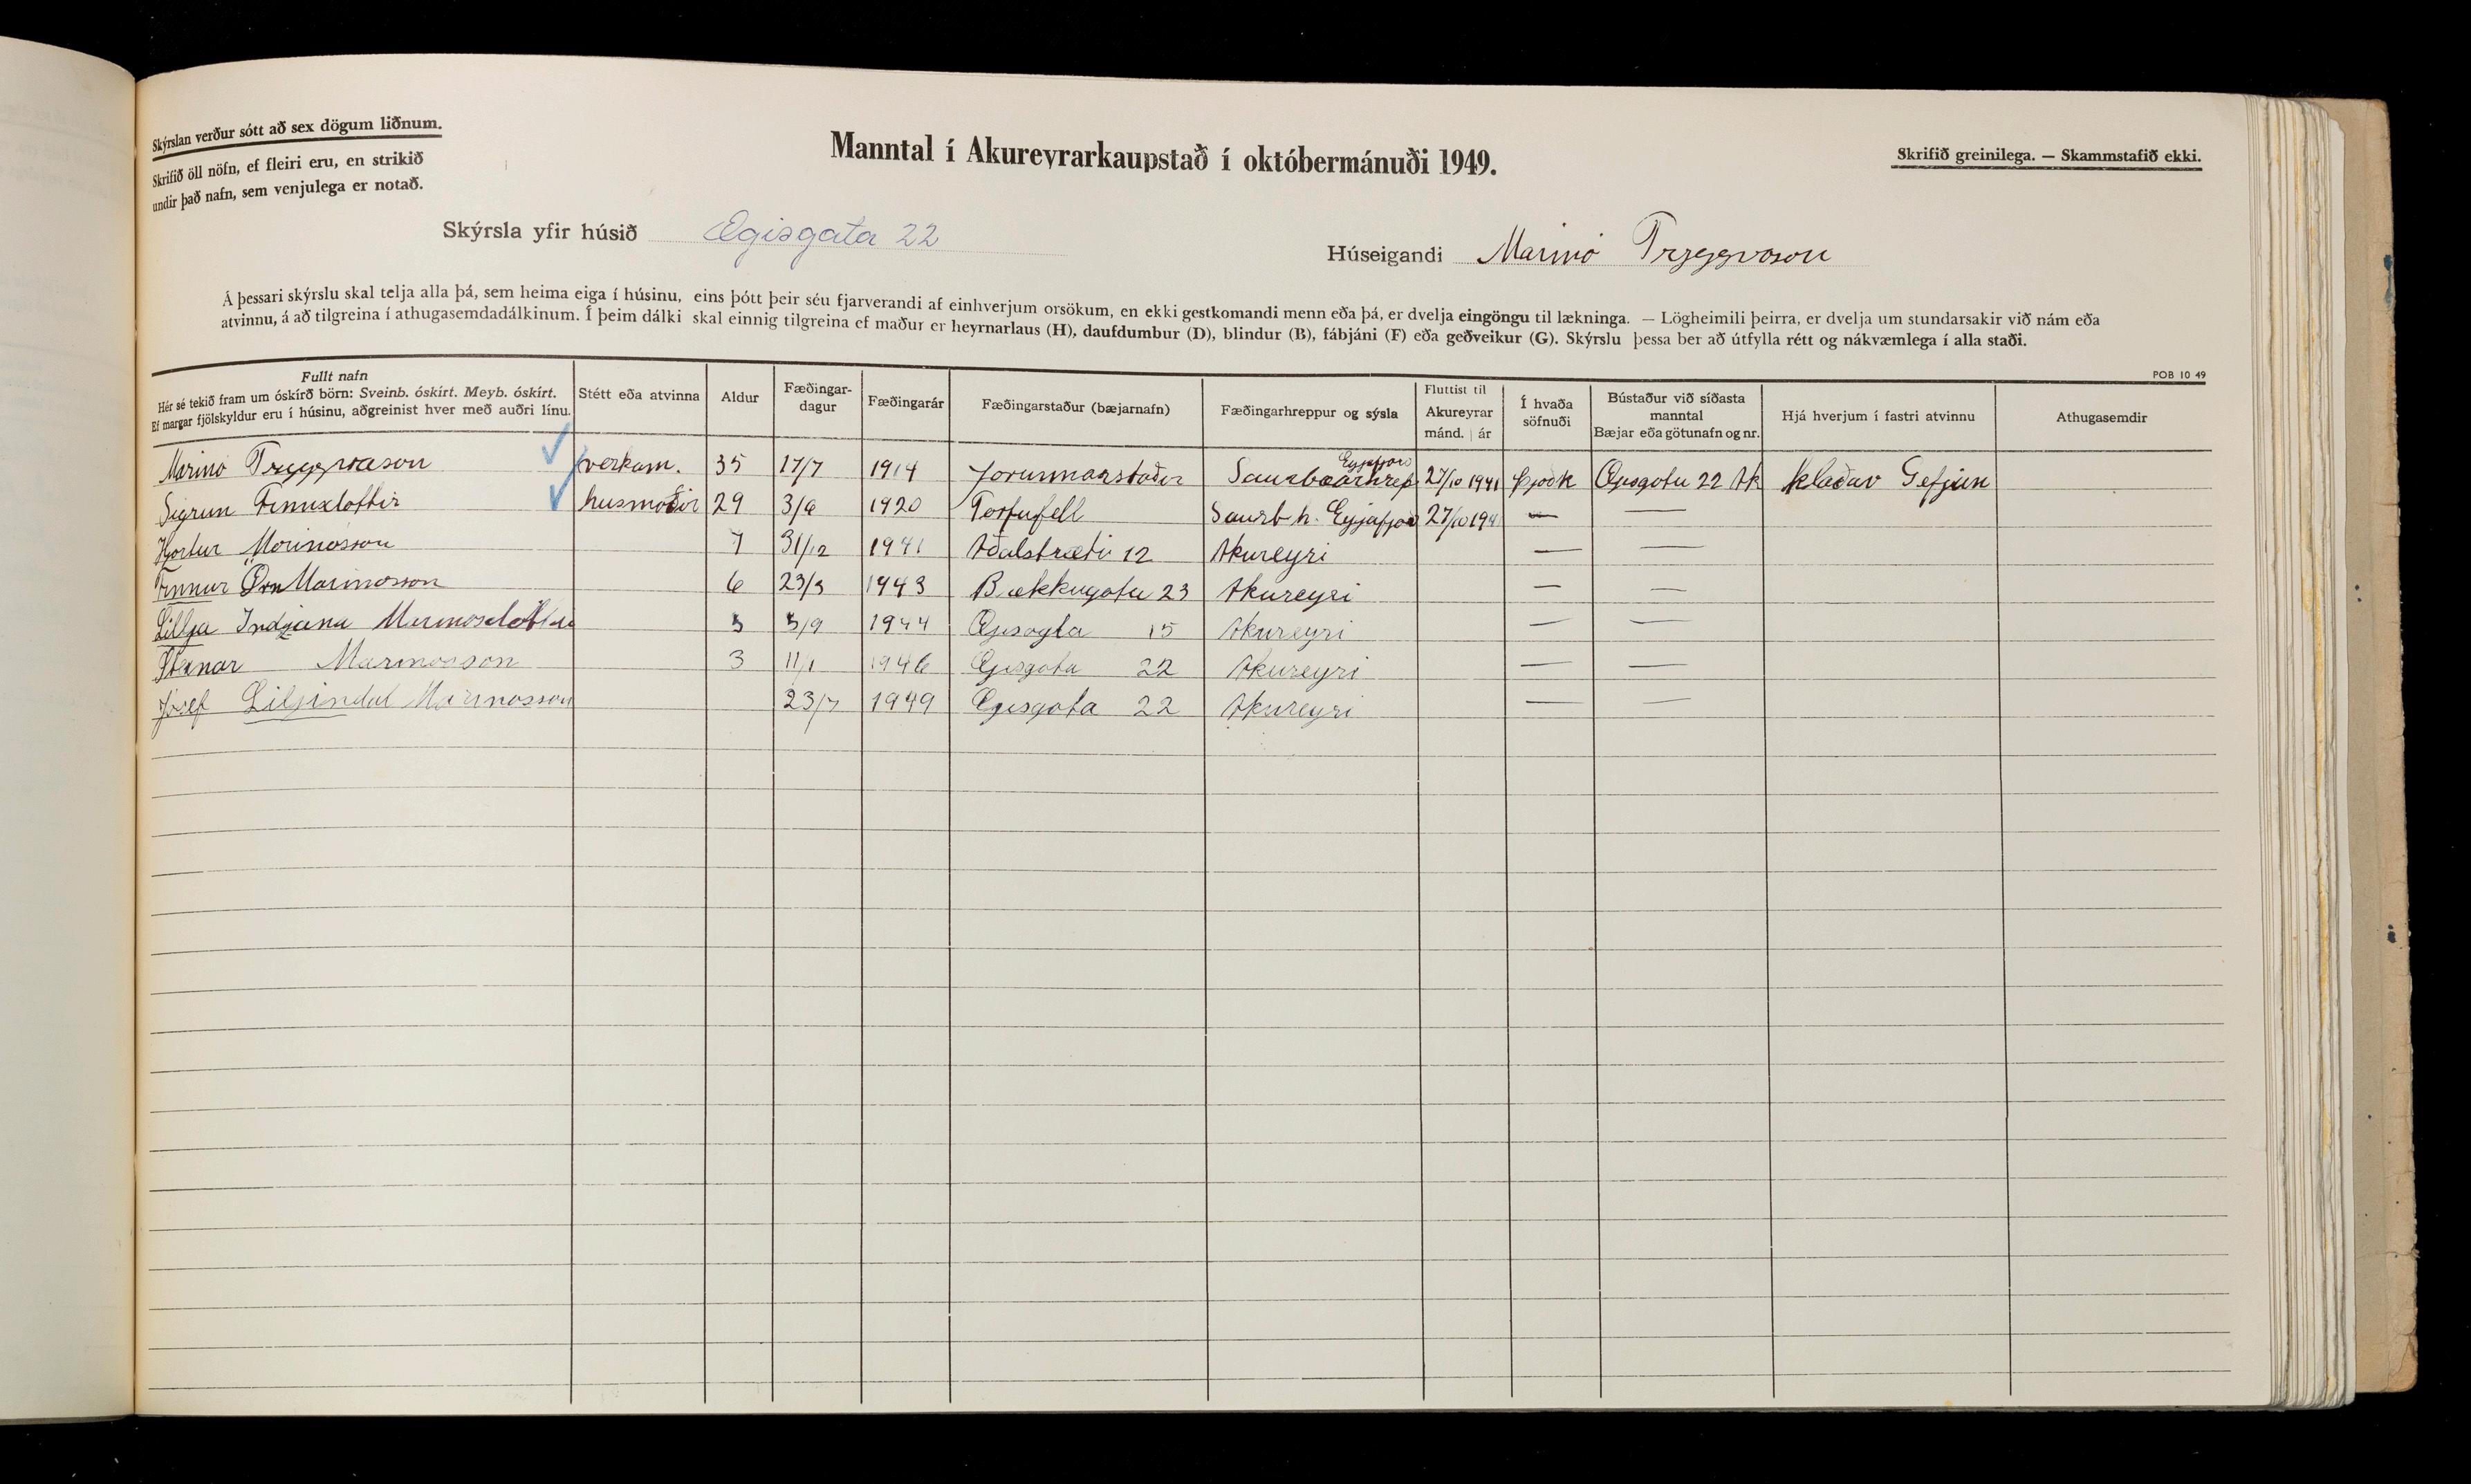 Skýrslan verður sótt að sex dögum liðnum.
Skrifið öll nöfn, ef fleiri eru, en strikið
undir það nafn, sem venjulega er notað.
Manntal í Akureyrarkaupstað í októbermánuði 1949.
Skrifið greinilega. — Skammstafið ekki.
Skýrsla yfir húsið Ægisgata 22
Húseigandi Marinó Tryggvason
Á þessari skýrslu skal telja alla þá, sem heima eiga í húsinu, eins þótt þeir séu fjarverandi af einhverjum orsökum, en ekki gestkomandi menn eða þá, er dvelja eingöngu til lækninga. — Lögheimili þeirra, er dvelja um stundarsakir við nám eða
atvinnu, á að tilgreina í athugasemdadálkinum. Í þeim dálki skal einnig tilgreina ef maður er heyrnarlaus (H), daufdumbur (D), blindur (B), fábjáni (F) eða geðveikur (G). Skýrslu þessa ber að útfylla rétt og nákvæmlega í alla staði.
POB 10 49
Fullt nafn
Hér sé tekið fram um óskírð börn: Sveinb. óskírt. Meyb. óskírt.
Ef margar fjölskyldur eru í húsinu, aðgreinist hver með auðri línu.
Stétt eða atvinna
Aldur
Fæðingar-
dagur
Fæðingarár
Fæðingarstaður (bæjarnafn)
Fæðingarhreppur og sýsla
Fluttist til
Akureyrar
mánd. | ár
Í hvaða
söfnuði
Bústaður við síðasta
manntal
Bæjar eða götunafn og nr.
Hjá hverjum í fastri atvinnu
Athugasemdir
Marino Tryggvason verkam. 35 17/7 1914 Jorunnarstaðir Saurbæarhrep Eyjafjov 27/10 1941 þjoðk Ægisgotu 22 Ak klæðav Gefjun
Sigrun Finnsdottir husmoðir 29 3/6 1920 Torfufell Saurb h. Eyjafjov 27/10 194 — —
Hjortur Marinosson 7 31/12 1941 Aðalstræti 12 Akureyri — —
Finnur Örn Marinosson 6 23/3 1943 Brekkugotu 23 Akureyri — —
Lillja Indjana Marinosdottir 5 5/9 1944 Ægisgta 15 Akureyri — —
Steinar Marinosson 3 11/1 1946 Ægisgata 22 Akureyri — —
Josef Liljindal Marinosson 23/7 1949 Ægisgata 22 Akureyri — —